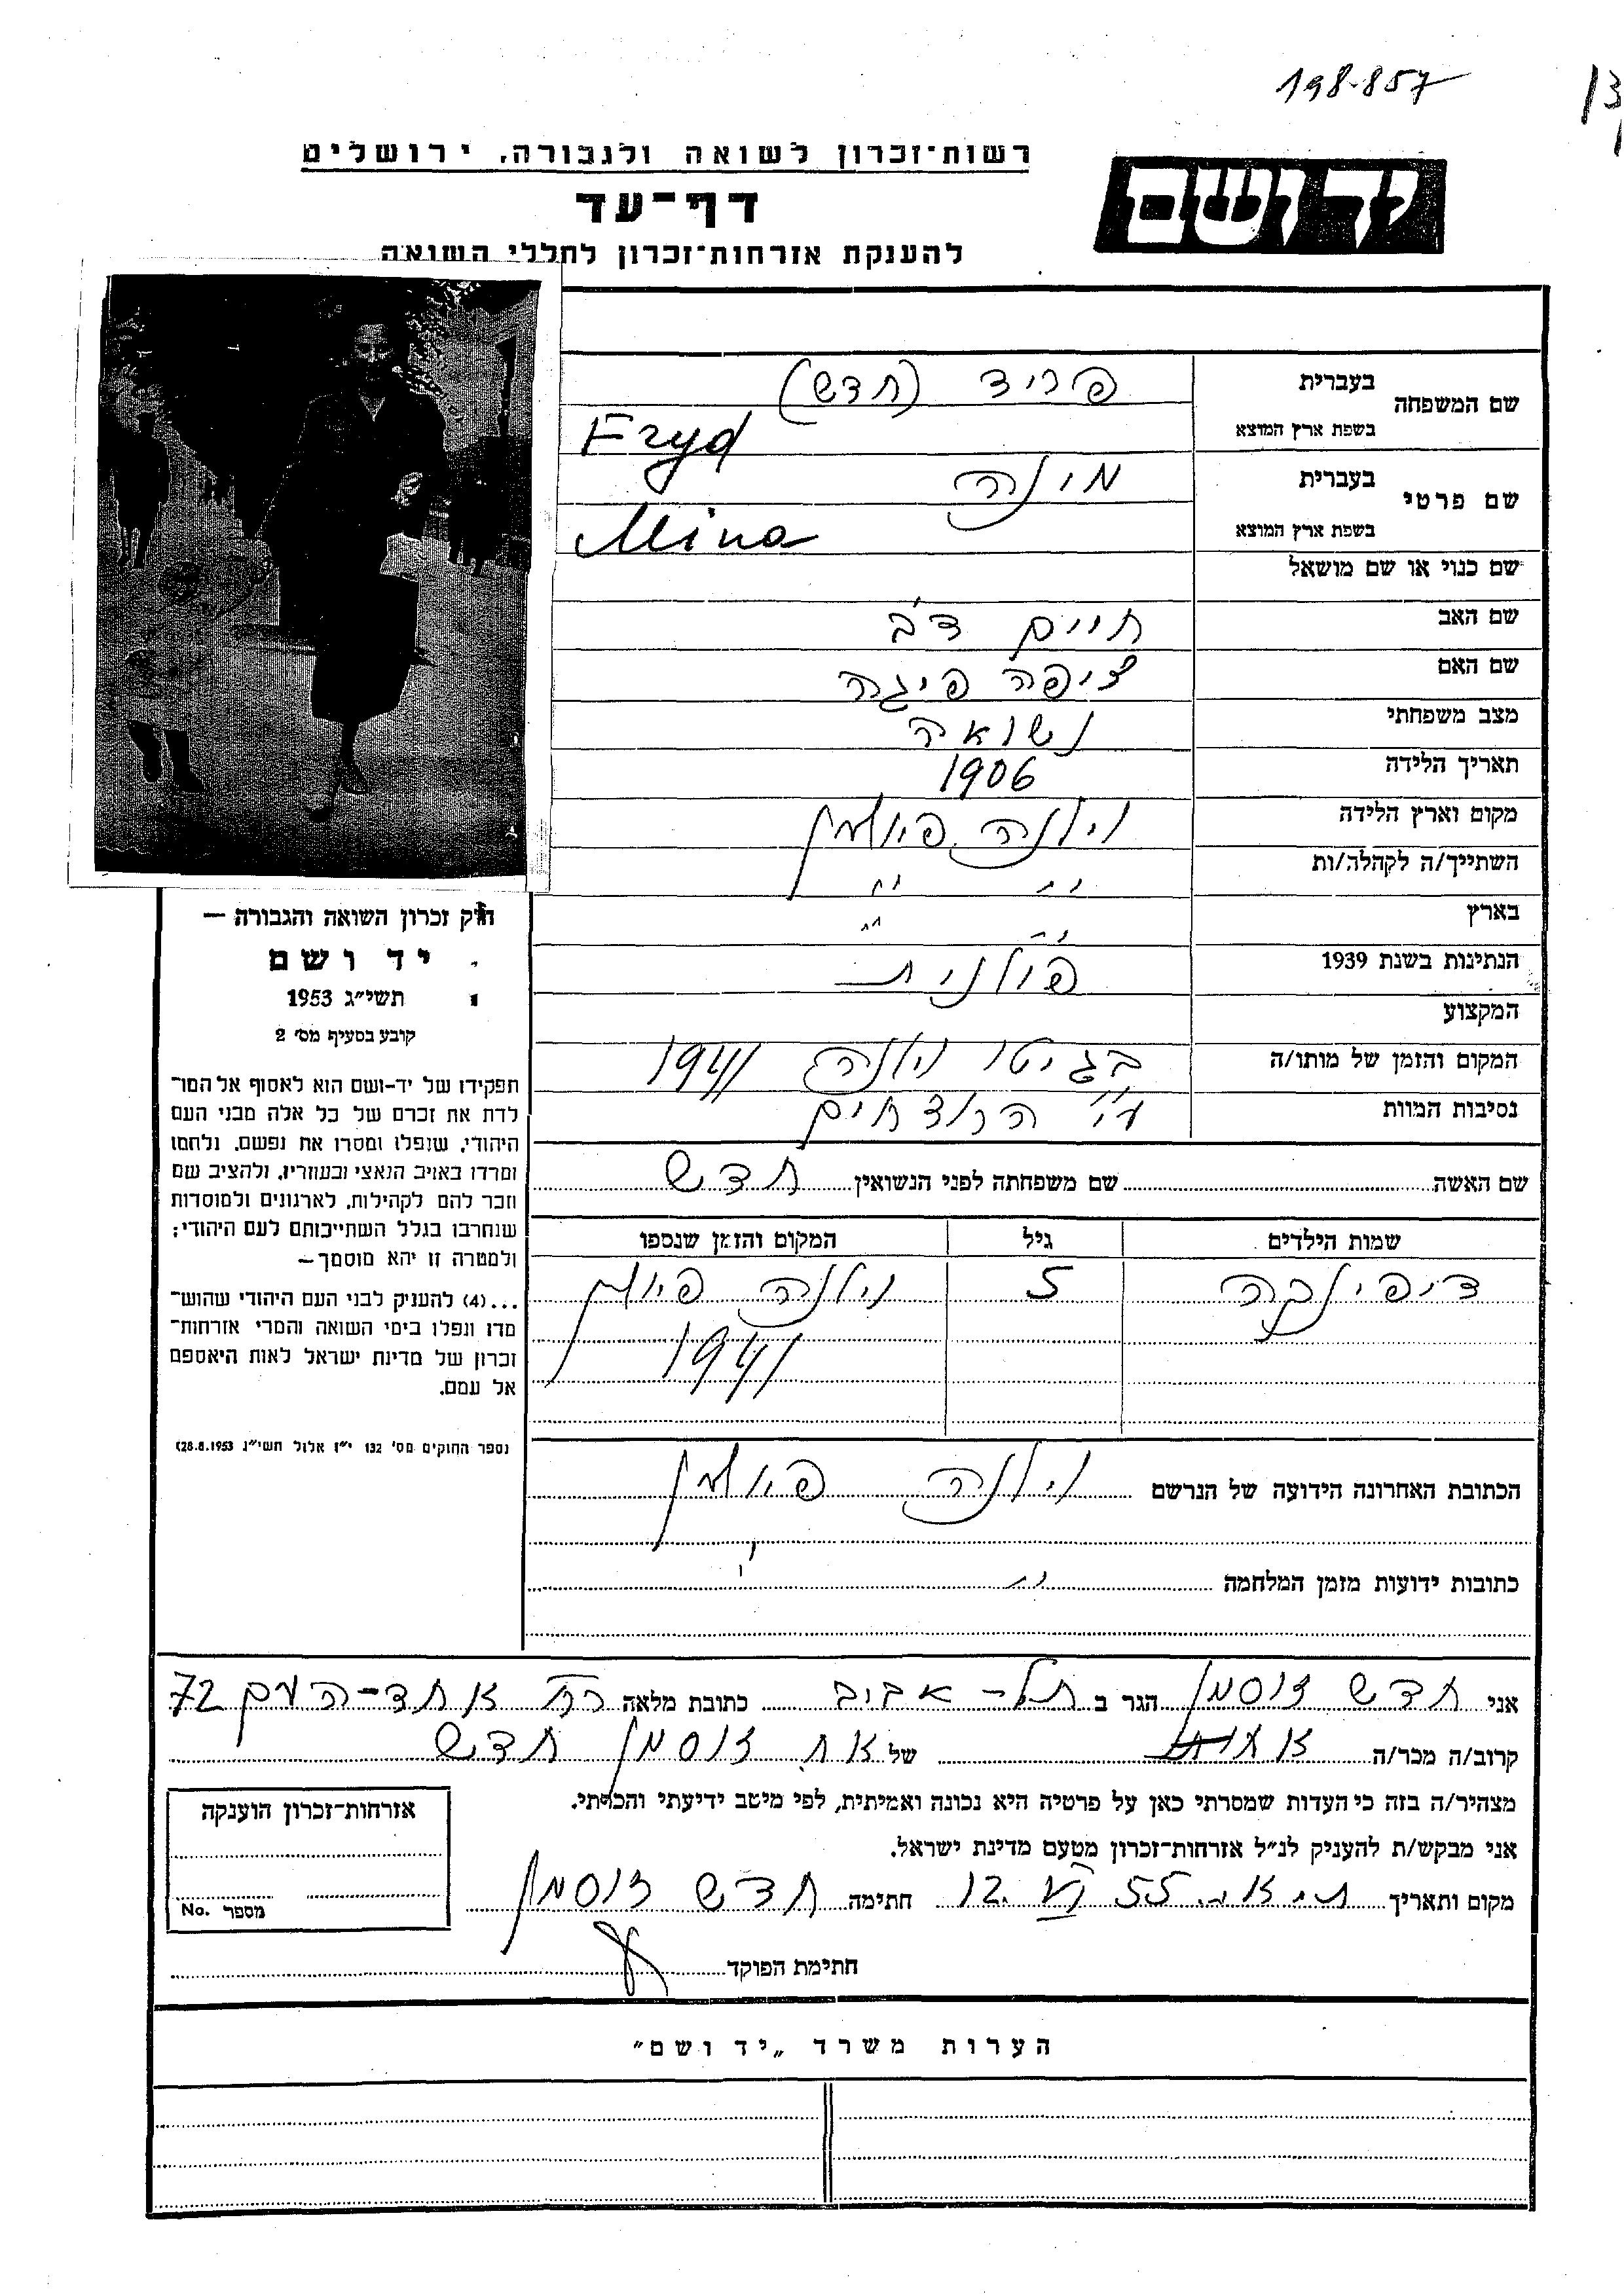 198-857
רשות־זכרון לשואה ולגבורה, ירושלים
יד ושם
דף־עד
להענקת אזרחות־זכרון לחללי השואה
שם המשפחה בעברית פריד (חדש)
בשפת ארץ המוצא Fryd
שם פרטי בעברית מינה
בשפת ארץ המוצא Mina
שם כנוי או שם מושאל
שם האב חיים דב
שם האם ציפה פיגה
מצב משפחתי נשואה
תאריך הלידה 1906
מקום וארץ הלידה וילנה פולין
השתייך/ה לקהלה/ות " "
בארץ " "
הנתינות בשנת 1939 פולנית
המקצוע
המקום והזמן של מותו/ה בגיטו וילנה 1941
נסיבות המוות ע"י הרוצחים
שם האשה שם משפחתה לפני הנשואין חדש
שמות הילדים גיל המקום והזמן שנספו
5 וילנה פולין
1941
הכתובת האחרונה הידועה של הנרשם וילנה פולין
כתובות ידועות מזמן המלחמה "
חוק זכרון השואה והגבורה —
יד ושם
תשי״ג 1953
קובע בסעיף מס׳ 2
תפקידו של יד-ושם הוא לאסוף אל המו־
לדת את זכרם של כל אלה מבני העם
היהודי, שנפלו ומסרו את נפשם, נלחמו
ומרדו באויב הנאצי ובעוזריו, ולהציב שם
וזכר להם לקהילות, לארגונים ולמוסדות
שנחרבו בגלל השתייכותם לעם היהודי;
ולמטרה זו יהא מוסמך —
...(4) להעניק לבני העם היהודי שהוש־
מדו ונפלו בימי השואה והמרי אזרחות־
זכרון של מדינת ישראל לאות היאספם
אל עמם.
(ספר החוקים מס׳ 132 י״ז אלול תשי״ג 28.8.1953)
אני חדש זוסמן הגר ב תל-אביב כתובת מלאה רח' אחד-העם 72
קרוב/ה מכר/ה של אח זוסמן חדש
מצהיר/ה בזה כי העדות שמסרתי כאן על פרטיה היא נכונה ואמיתית, לפי מיטב ידיעתי והכרתי.
אני מבקש/ת להעניק לנ״ל אזרחות־זכרון מטעם מדינת ישראל.
מקום ותאריך ת.א. 12.VI.55 חתימה חדש זוסמן
חתימת הפוקד
אזרחות־זכרון הוענקה
מספר No.
הערות משרד „יד ושם״